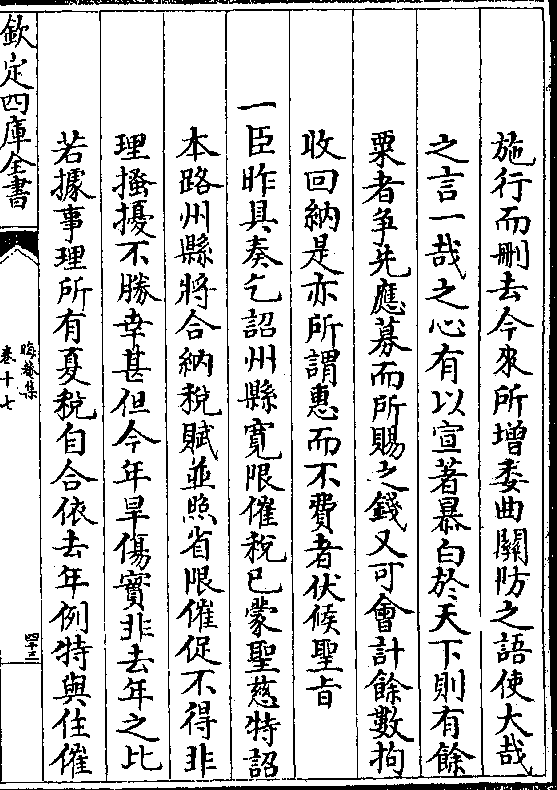 施行而刪去今來所增委曲關防之語使大哉
之言一哉之心有以宣著㬥白於天下則有餘
粟者爭先應募而所賜之錢又可會計餘數拘
收回納是亦所謂惠而不費者伏候聖旨
一臣昨具奏乞詔州縣寛限催税已蒙聖慈特詔
本路州縣將合納税賦並照省限催促不得非
理搔擾不勝幸甚但今年旱傷實非去年之比
若據事理所有夏税自合依去年例特與住催
欽定四庫全書
晦菴集
卷十七
四十三